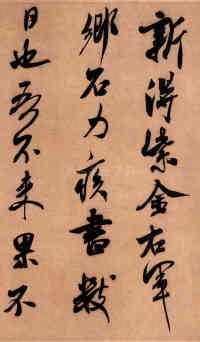 新得紫金右軍
鄉石力疾書數
日也吾不来果不